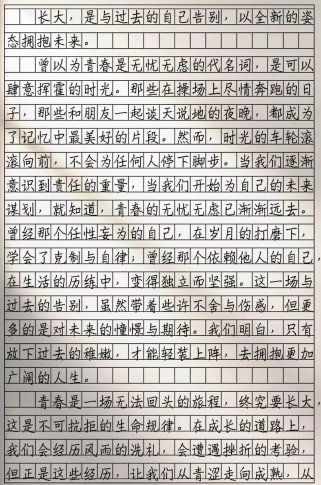 长大，是与过去的自己告别，以全新的姿
态拥抱未来。
曾以为青春是无忧无虑的代名词，是可以
肆意挥霍的时光。那些在操场上尽情奔跑的日
子，那些和朋友一起谈天说地的夜晚，都成为
了记忆中最美好的片段。然而，时光的车轮滚
滚向前，不会为任何人停下脚步。当我们逐渐
意识到责任的重量，当我们开始为自己的未来
谋划，就知道，青春的无忧无虑已渐渐远去。
曾经那个任性妄为的自己，在岁月的打磨下，
学会了克制与自律；曾经那个依赖他人的自己，
在生活的历练中，变得独立而坚强。这一场与
过去的告别，虽然带着些许不舍与伤感，但更
多的是对未来的憧憬与期待。我们明白，只有
放下过去的稚嫩，才能轻装上阵，去拥抱更加
广阔的人生。
青春是一场无法回头的旅程，终究要长大，
这是不可抗拒的生命规律。在成长的道路上，
我们会经历风雨的洗礼，会遭遇挫折的考验，
但正是这些经历，让我们从青涩走向成熟，从